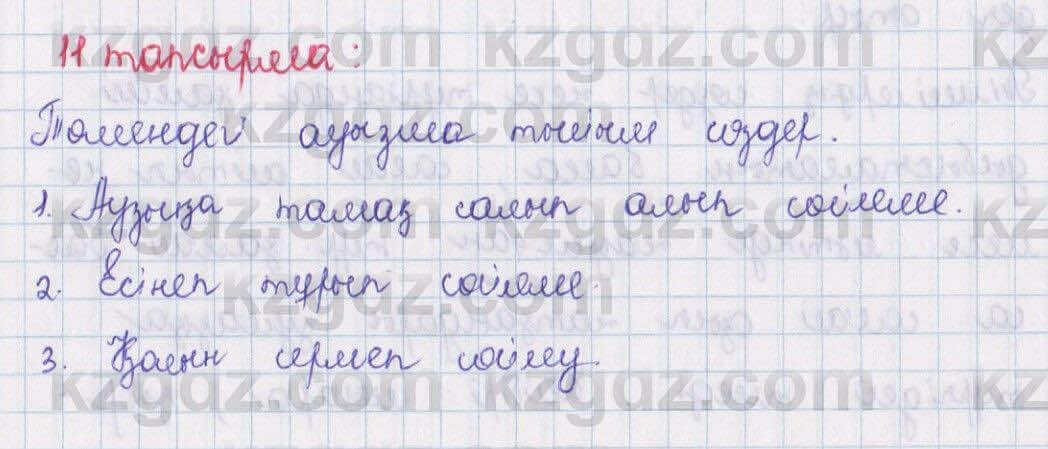 11 тапсырма:
Төмендегі ауызша тыйым сөздер.
1. Аузыңа тамақ салып алып сөйлеме.
2. Есінеп тұрып сөйлеме.
3. Қолын сермеп сөйлеу.
kzgdz.com